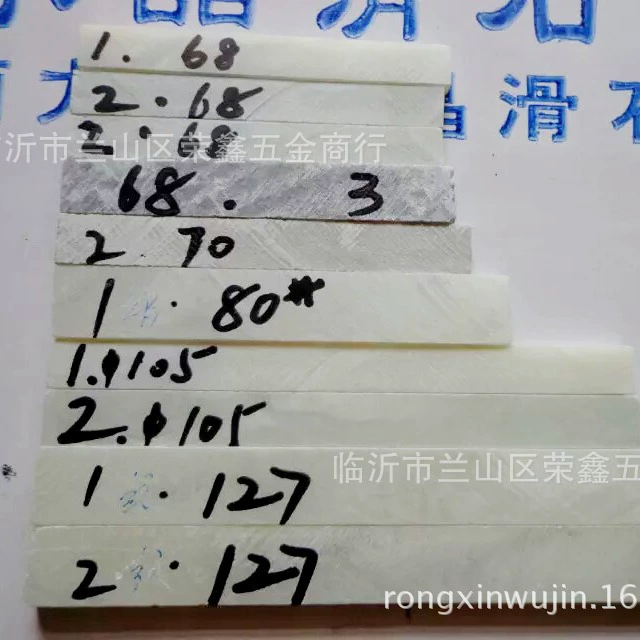 1. 68
晶滑石
2. 68
2. 68
临沂市兰山区荣鑫五金商行
68. 3
2. 70
1 . 80*
1.φ105
2.φ105
1 . 127
临沂市兰山区荣鑫五
2 . 127
rongxinwujin.16